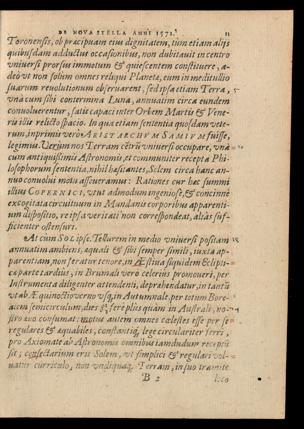 DE NOVA STELLA ANNI 1572. 11
Toronensis, ob præcipuam eius dignitatem, tùm etiam alijs
quibusdam adductus occasionibus, non dubitauit in centro
vniuersi prorsus immotum & quiescentem constituere, a-
deò vt non solùm omnes reliqui Planetæ, eum in meditullio
suarum reuolutionum obseruarent, sed ipsa etiam Terra,
vnà cum sibi contermina Luna, annuatim circa eundem
conuolueretur, satis capaci inter Orbem Martis & Vene-
ris illi relicto spacio. In qua etiam sententia quosdam vete-
rum, inprimis verò ARISTARCHVM SAMIVM fuisse,
legimus. Verùm nos Terram cẽtrũ vniuersi occupare, vnà
cum antiquissimis Astronomis, et communiter recepta Phi-
losophorum sententia, nihil hæsitantes, Solem circa hanc an-
nuo conuolui motu asseueramus: Rationes cur hæc summi
illius COPERNICI, vtut admodum ingeniosè, & concinnè
excogitata circuituum in Mundanis corporibus apparenti-
um dispositio, re ipsa veritati non correspondeat, aliàs suf-
ficienter ostensuri.
At cùm Sol ipse, Tellurem in medio vniuersi positam
annuatim ambiens, æquali & sibi semper simili, iuxta ap-
parentiam, non feratur tenore, in Æstiua siquidem Eclipti-
cæ parte tardiùs, in Brumali verò celeriùs promoueri, per
Instrumenta diligenter attendenti, deprehendatur, in tantũ
vt ab Æquinoctio verno vsq; in Autumnale, per totum Bore-
alem semicirculum, dies 8¾ ferè plus quàm in Australi, no-
stro æuo consumat: motus autem omnes cælestes esse per se
regulares & æquabiles, constantiq́; lege circulariter ferri,
pro Axiomate ab Astronomis omnibus iamdudum receptũ
sit; consectarium erit Solem, vt simplici & regulari vol-
uatur curriculo, non vndiquaq; Terram, in suo tramite
B 2 loco